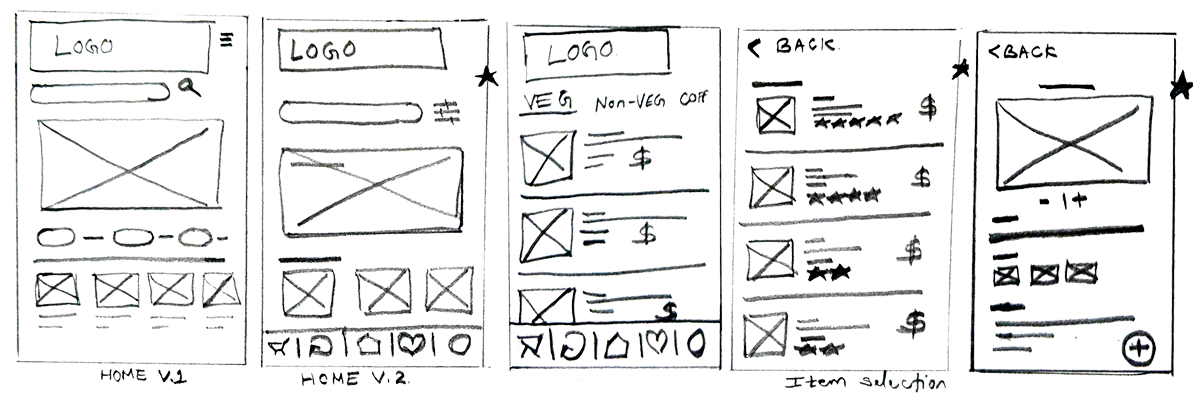 LOGO
HOME V.1
LOGO
HOME V.2.
LOGO
VEG Non-VEG COFF
$
$
$
< BACK.
$
$
$
$
Item selection
<BACK
- 1 +
+